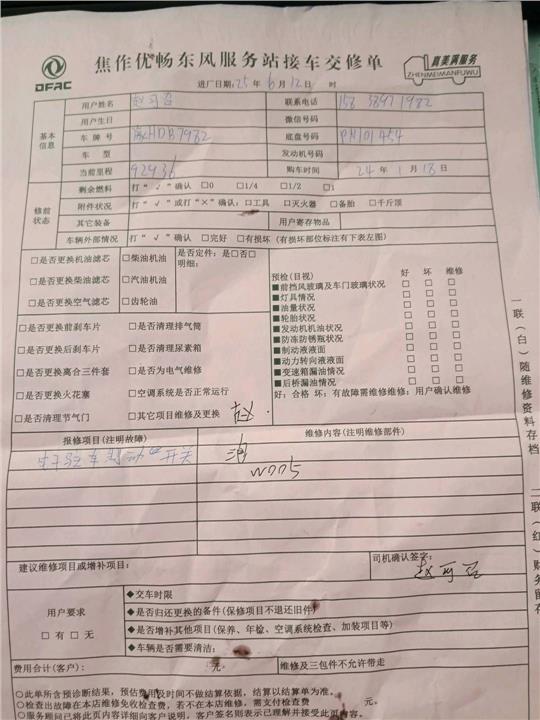 DFAC
焦作优畅东风服务站接车交修单
真美满服务
ZHENMEIMANFUWU
进厂日期:25年6月12日 时
基本信息
用户姓名 联系电话
用户生日 微信号码
车牌号 豫HDB7982 底盘号码
车型 发动机号码
当前里程 92936 购车时间 24年1月18日
修前状态
剩余燃料 打“√”确认 □0 □1/4 □1/2 □1
附件状况 打“√”或打“×”确认:□工具 □灭火器 □备胎 □千斤顶
其它装备 用户寄存物品
车辆外部情况 打“√”确认 □完好 □有损坏(有损坏部位标注有下表左图)
□是否更换机油滤芯 □柴油机油 是否定件:是□否□
明细:
□是否更换柴油滤芯 □汽油机油
□是否更换空气滤芯 □齿轮油
预检(目视) 好 坏 维修
■前挡风玻璃及车门玻璃状况 □ □ □
■灯具情况 □ □ □
■油量状况 □ □ □
■轮胎状况 □ □ □
■发动机机油状况 □ □ □
■防冻防锈瓶状况 □ □ □
■制动液液面 □ □ □
■动力转向液液面 □ □ □
■变速箱漏油情况 □ □ □
■后桥漏油情况 □ □ □
好:合格 坏:有故障需维修维修:用户确认维修
□是否更换前刹车片 □是否清理排气筒
□是否更换后刹车片 □是否清理尿素箱
□是否更换离合三件套 □是否为电气维修
□是否更换火花塞 □空调系统是否正常运行
□是否清理节气门 □其它项目维修及更换 赵
报修项目(注明故障) 维修内容(注明维修部件)
电子驻车制动 开关
W005
建议维修项目或增补项目: 司机确认签字:
用户要求
□有 □无
◆交车时限
◆是否归还更换的备件(保修项目不退还旧件)
◆是否增补其他项目(保养、年检、空调系统检查、加装项目等)
◆车辆是否需要清洁:
费用合计(客户): 元。 维修及三包件不允许带走
○此单所含预诊断结果,预估费用及时间不做结算依据,结算以结算单为准。
○检查出故障在本店维修免收检查费,若不在本店维修,需支付检查费 元。
○服务顾问已将此页内容详细向客户说明,客户签名则表示已理解并接受此页内容。
一联(白)随维修资料存档